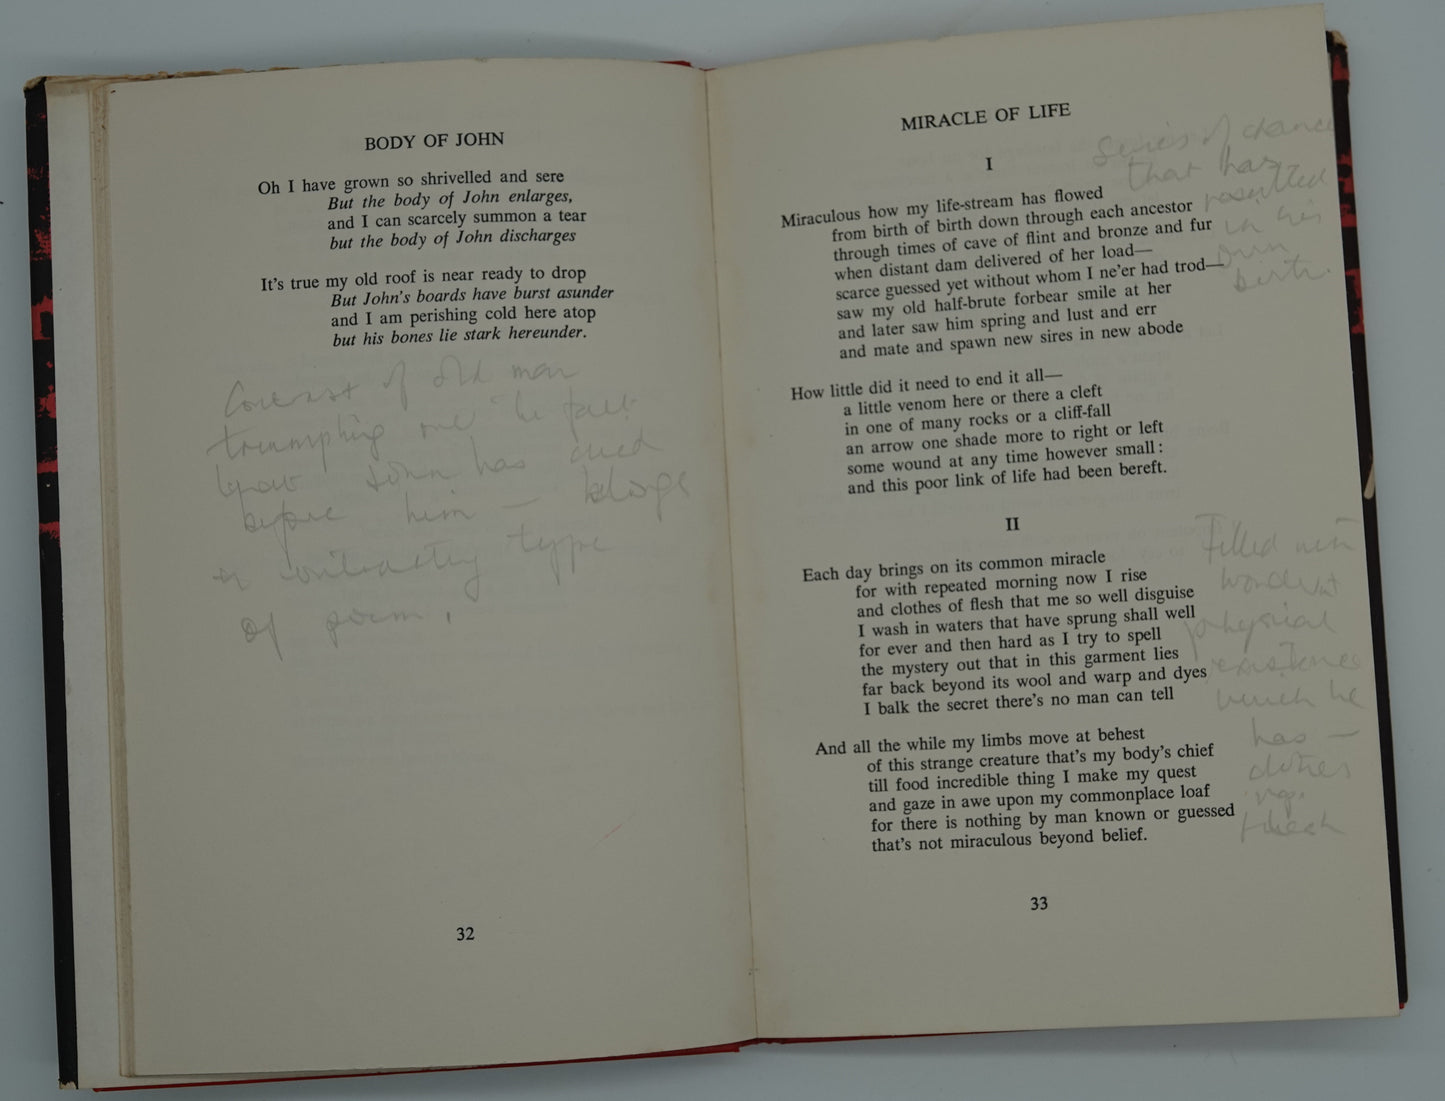 BODY OF JOHN
Oh I have grown so shrivelled and sere
But the body of John enlarges,
and I can scarcely summon a tear
but the body of John discharges
It's true my old roof is near ready to drop
But John's boards have burst asunder
and I am perishing cold here atop
but his bones lie stark hereunder.
of old man
John has
before him —
type
of poem.
32
MIRACLE OF LIFE
I
Series of chance
that has
resulted
in his
own
birth.
Miraculous how my life-stream has flowed
from birth of birth down through each ancestor
through times of cave of flint and bronze and fur
when distant dam delivered of her load—
scarce guessed yet without whom I ne'er had trod—
saw my old half-brute forbear smile at her
and later saw him spring and lust and err
and mate and spawn new sires in new abode
How little did it need to end it all—
a little venom here or there a cleft
in one of many rocks or a cliff-fall
an arrow one shade more to right or left
some wound at any time however small :
and this poor link of life had been bereft.
II
Each day brings on its common miracle
for with repeated morning now I rise
and clothes of flesh that me so well disguise
I wash in waters that have sprung shall well
for ever and then hard as I try to spell
the mystery out that in this garment lies
far back beyond its wool and warp and dyes
I balk the secret there's no man can tell
And all the while my limbs move at behest
of this strange creature that's my body's chief
till food incredible thing I make my quest
and gaze in awe upon my commonplace loaf
for there is nothing by man known or guessed
that's not miraculous beyond belief.
Filled with
wonder at
physical
existence
which he
has —
clothes
flesh
33